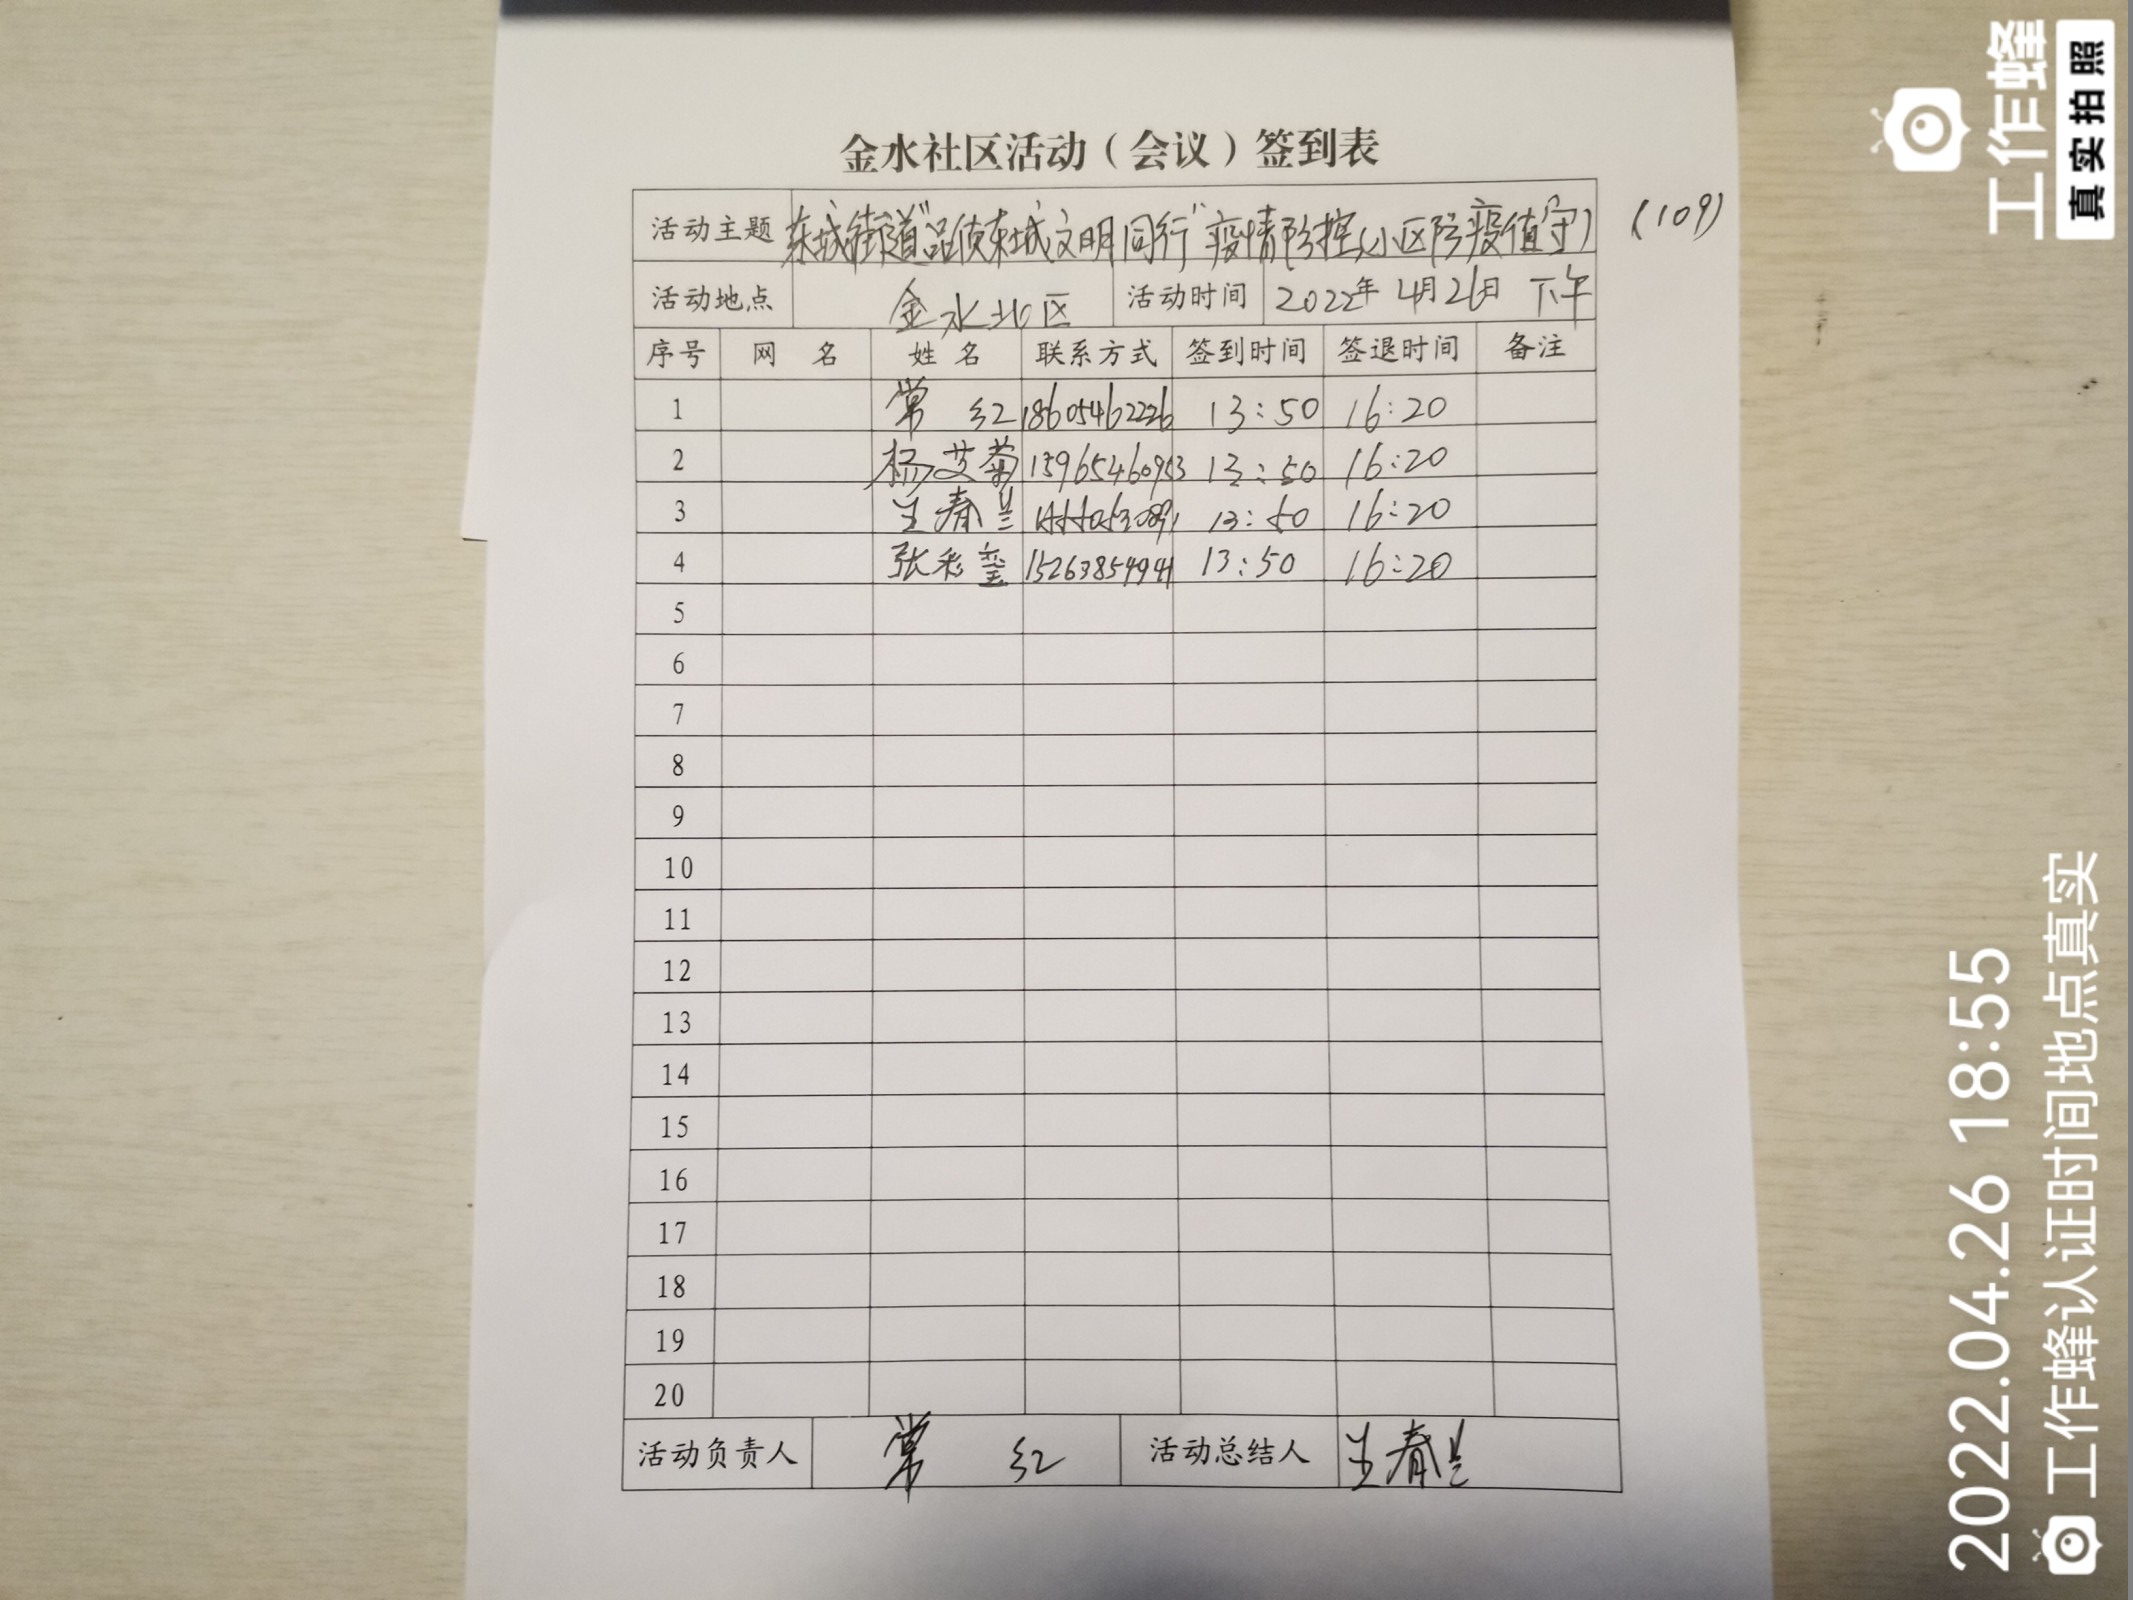 金水社区活动（会议）签到表
活动主题 东城街道"品质东城文明同行"疫情防控(小区防疫值守) (109)
活动地点 金水北区 活动时间 2022年4月26日 下午
序号 网名 姓名 联系方式 签到时间 签退时间 备注
1 常红 18605462226 13:50 16:20
2 杨艾菊 15965460953 13:50 16:20
3 王春兰 13:50 16:20
4 张彩 15263854941 13:50 16:20
5
6
7
8
9
10
11
12
13
14
15
16
17
18
19
20
活动负责人 常红 活动总结人 王春兰
工作蜂
真实拍照
2022.04.26 18:55
工作蜂认证时间地点真实